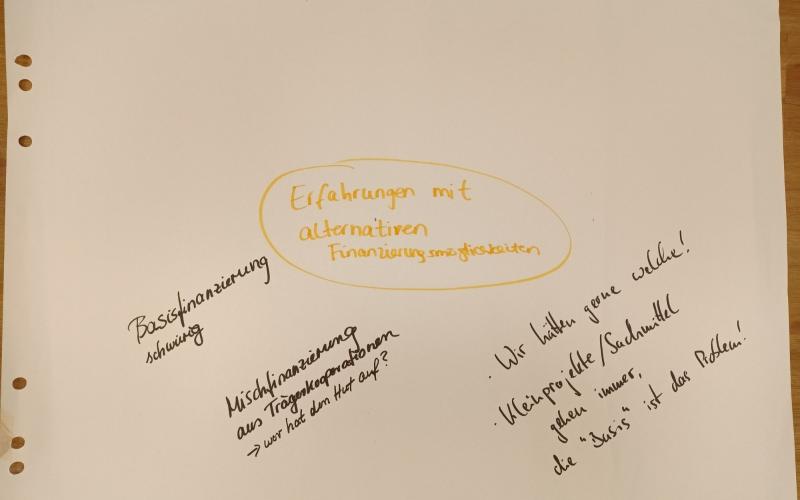 Erfahrungen mit
alternativen
Finanzierungsmöglichkeiten
Basisfinanzierung
schwierig
Mischfinanzierung
aus Trägerkooperationen
→ wer hat den Hut auf?
· Wir hätten gerne welche!
· Kleinprojekte/Sachmittel
gehen immer,
die "Basis" ist das Problem!